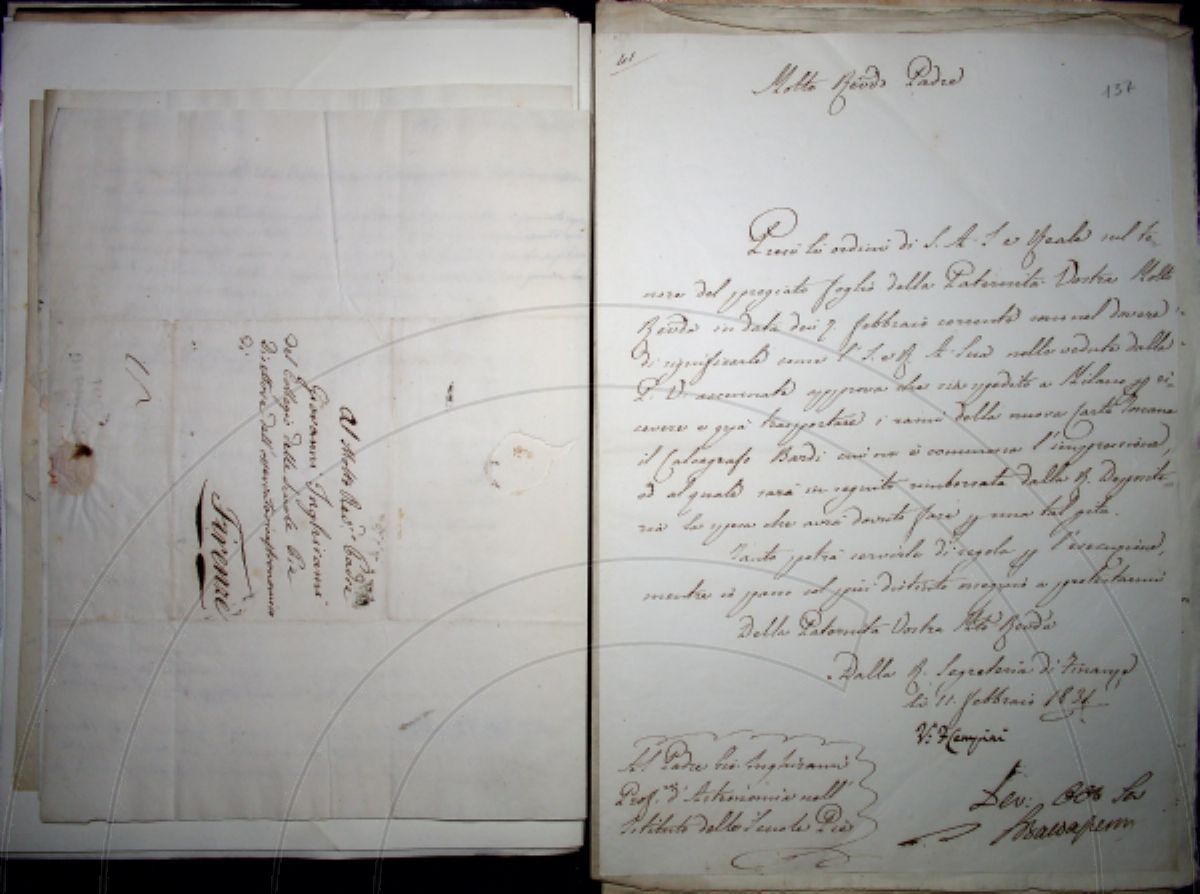 Al Molto Rev.do Padre
Giovanni Inghirami
del Collegio delle Scuole Pie
Direttore dell'osservatorio astronomico
di
Firenze
Molto Revdo Padre
137
Presi li ordini di S. A. I. e Reale sul te-
nore del pregiato foglio della Paternità Vostra Molto
Revda in data dei 7. febbraio corrente sono nel dovere
di significarle come l'I. e R. A. Sua nelle vedute dalla
P. V. accennate approva che sia spedito a Milano p ri-
cevere e quà trasportare i rami della nuova Carta Toscana
il Calcografo Bardi cui ne è commessa l'impressione,
ed al quale sarà in seguito rimborsata dalla R. Deposite-
ria la spesa che avrà dovuto fare p una tal gita.
Tanto potrà servirle di regola p l'esecuzione,
mentre io passo col più distinto ossequio a protestarmi
Della Paternità Vostra Mto Revda
Dalla R. Segreteria di Finanze
li 11. febbraio 1831
V.° F Cempini
Al Padre Gio Inghirami
Prof.re d'Astronomia nell'
Istituto delle Scuole Pie
Dev: Obb Ser